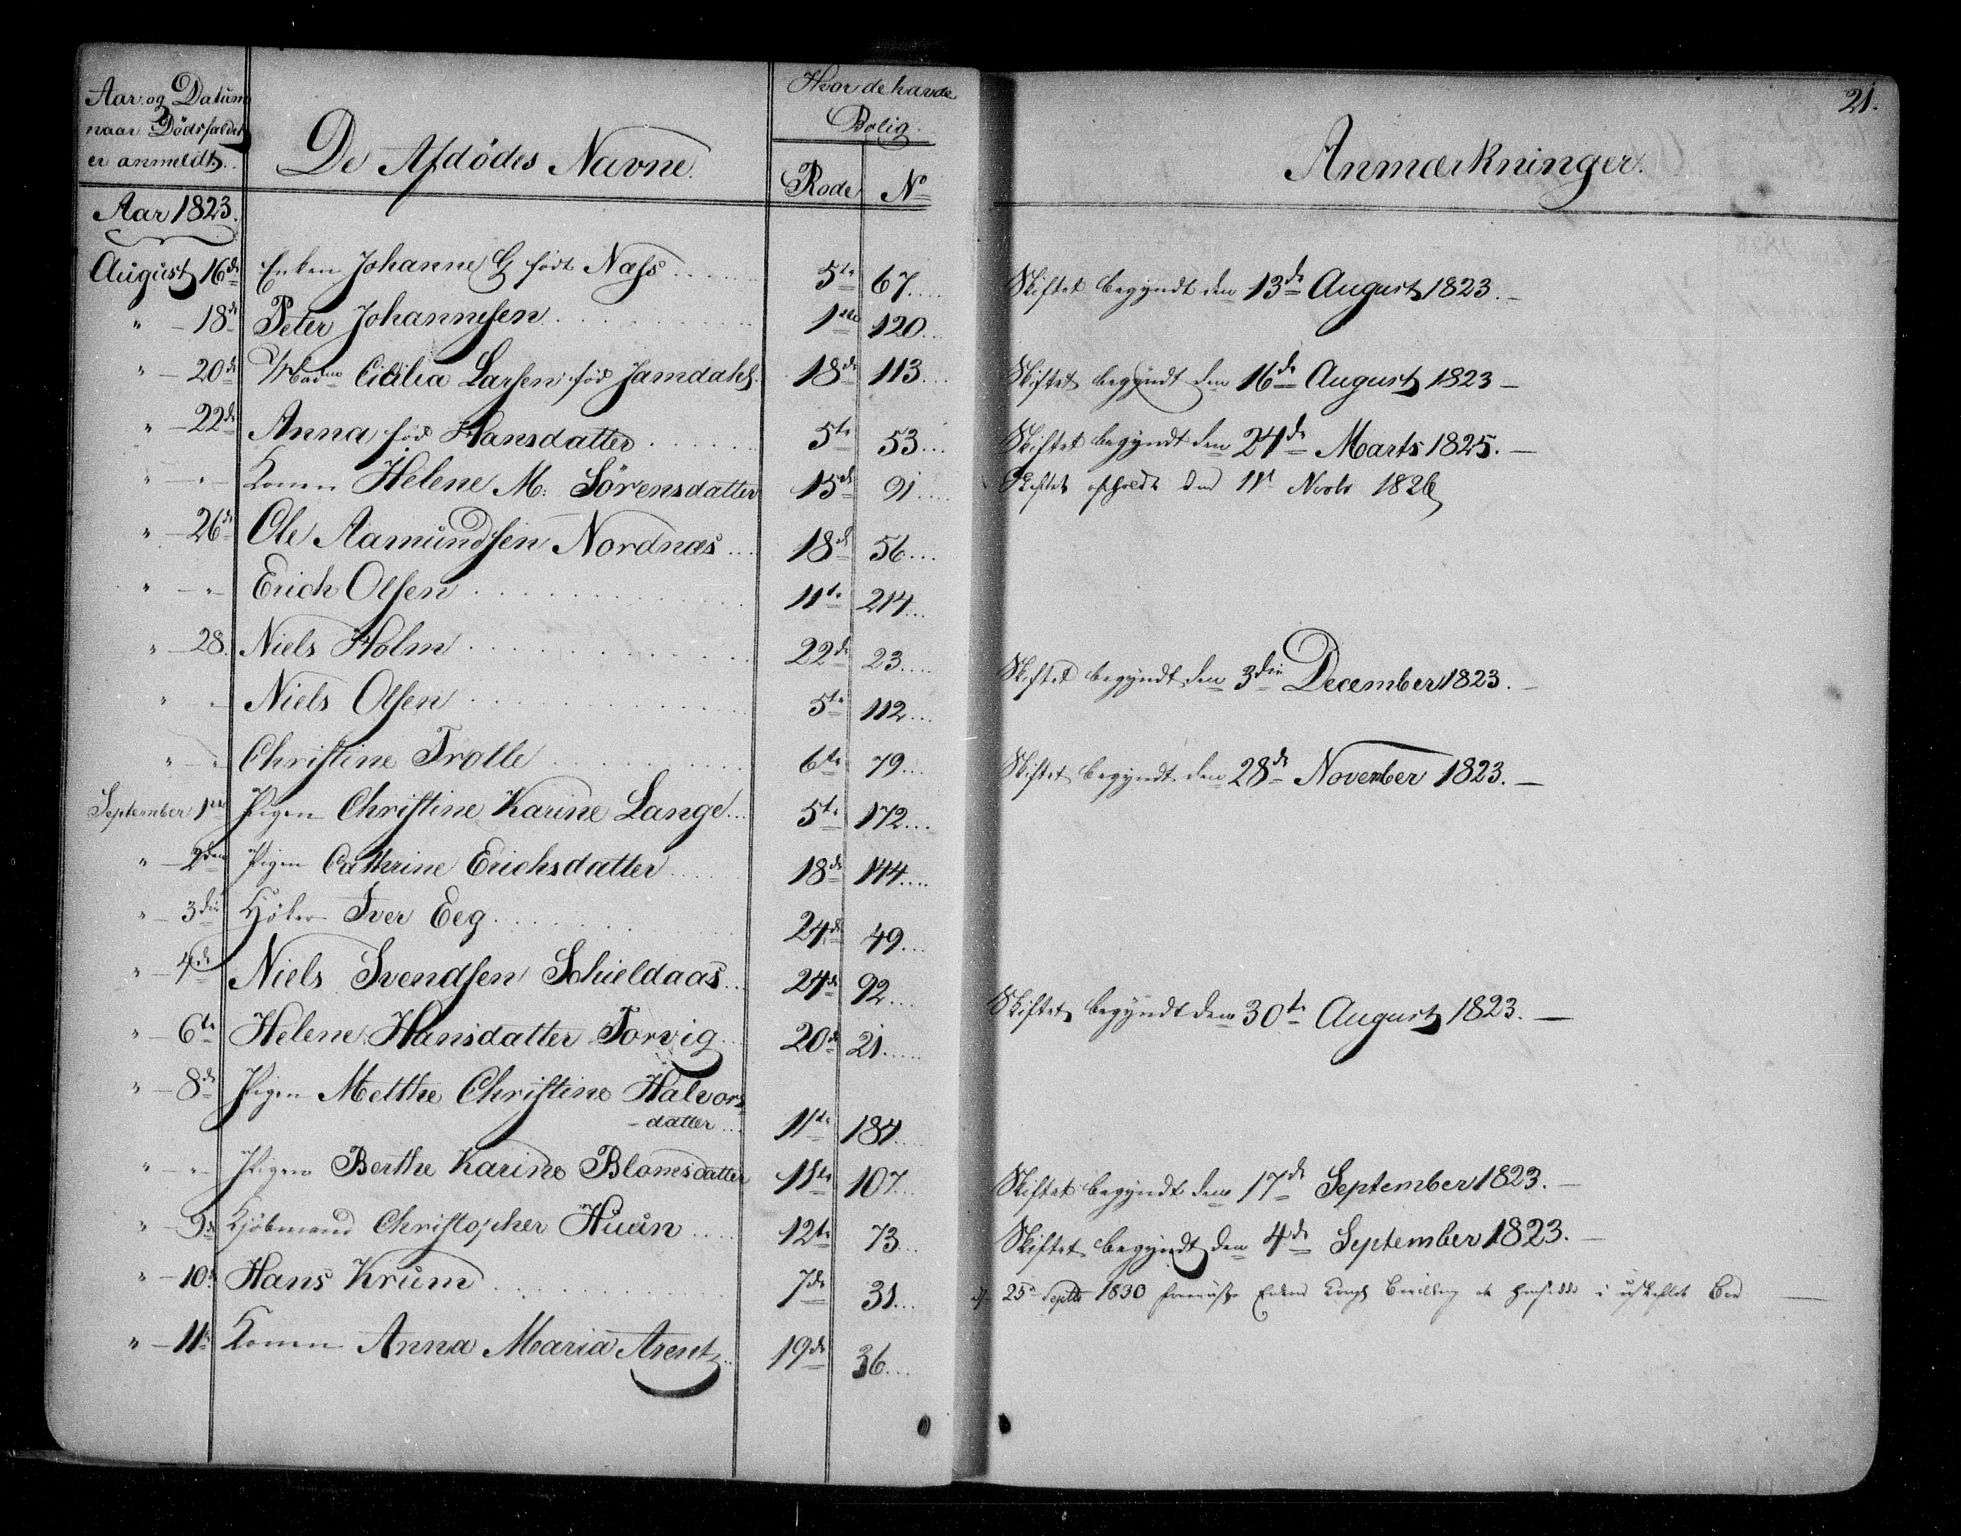 21.
Aar og Datum naar Dødsfaldet er anmeldt. De Afdødes Navne. Hvor de havde Bolig. Rode No Anmærkninger.
Aar 1823.
August 16de Enken Johanne G født Næss 5te 67. Skiftet begyndt den 13de August 1823.
" 18de Peter Johannesen 1ste 120.
" 20de Madme Cicilia Larsen fød Jamdahl 18de 113. Skiftet begyndt den 16de August 1823
" 22de Anna fød Hansdatter 5te 53. Skiftet begyndt den 24de Marts 1825.
" " Konen Helene M: Sörensdatter 15de 91. Skiftet afholdt den 11t Novbr 1826
" 26de Ole Aamundsen Nordnæs 18de 56.
" " Erich Olsen 11te 214.
" 28. Niels Holm 22de 23. Skiftet begyndt den 3die December 1823.
" " Niels Olsen 5te 112.
" " Christine Trolle 6te 79. Skiftet begyndt den 28de November 1823.
September 1ste Pigen Christine Karine Lange 5te 172.
" 2den Pigen Cathrine Erichsdatter 18de 144.
" 3die Höker Iver Eeg 24de 49.
" 4de Niels Svendsen Schieldaas 24de 92. Skiftet begyndt den 30te August 1823.
" 6te Helene Hansdatter Torvig 20de 21.
" 8de Pigen Metthe Christine Halvors
datter 11te 184.
" " Pigen Berthe Karine Blomsdatter 11te 107. Skiftet begyndt den 17de September 1823.
" 9de Kjøbmand Christopher Huun 12te 73. Skiftet begyndt den 4de September 1823.
" 10de Hans Krum 7de 31. 25 Septbr 1830 foreviiste Enken Kongl Bevilling at hensidde i uskiftet Boe
" 11te Konen Anna Maria Arentz 19de 36.